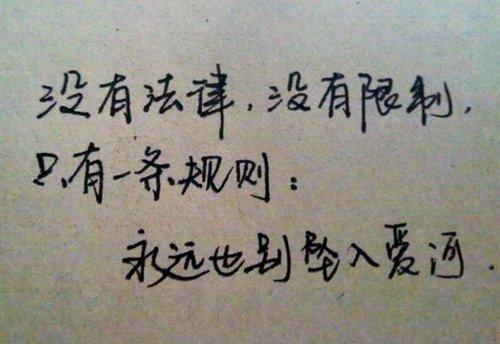 没有法律，没有限制，
只有一条规则：
永远也别坠入爱河．